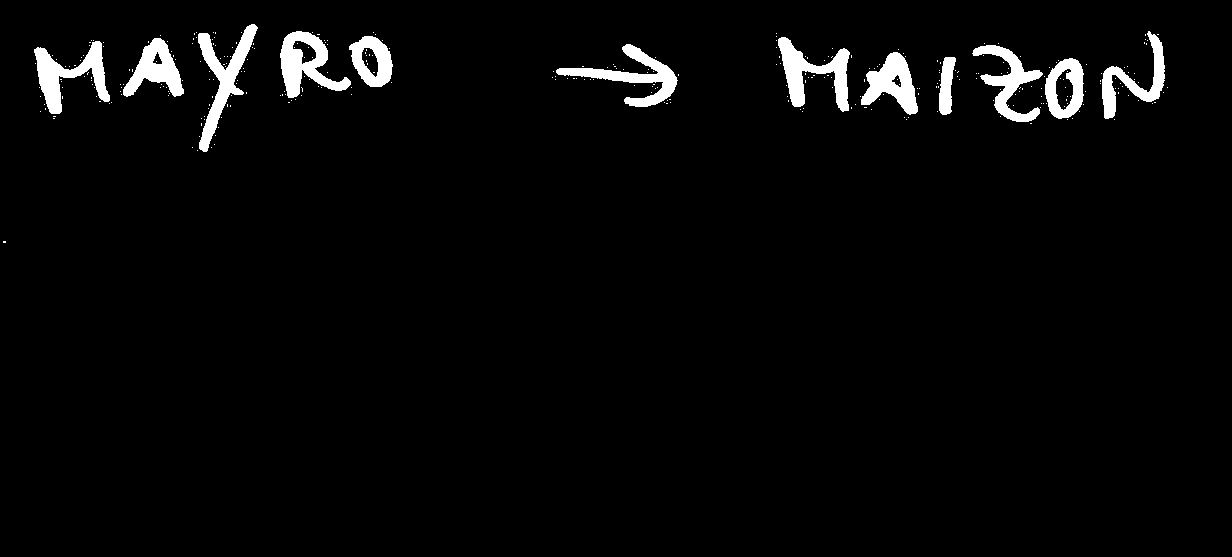 MAYRO → MAIZON